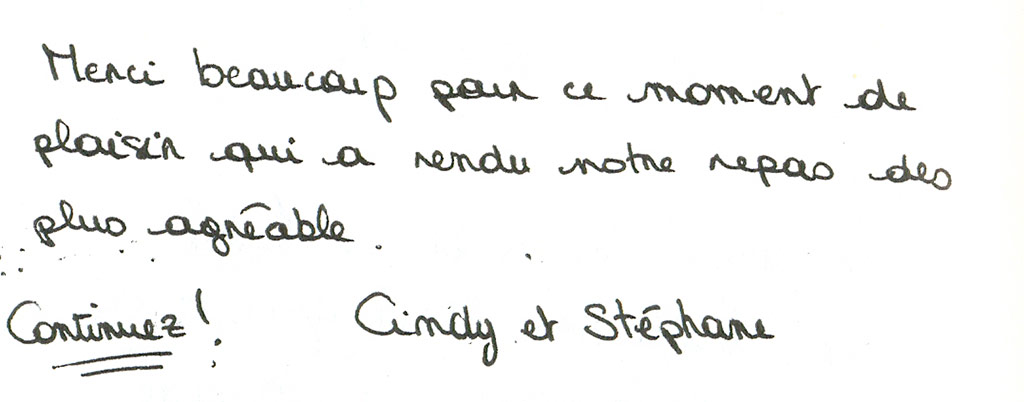 Merci beaucoup pour ce moment de
plaisir qui a rendu notre repas des
plus agréable.
Continuez! Cindy et Stéphane